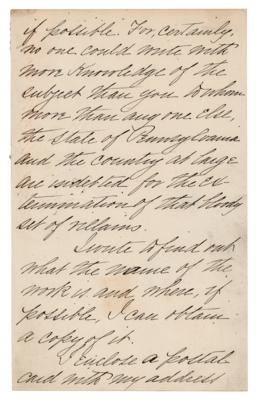 if possible. For, certainly,
no one could write with
more Knowledge of the
subject than you to whom
more than any one else,
the State of Pennsylvania
and the country at large
are indebted for the ex
termination of that bloody
set of villains.
I write to find out
what the name of the
work is and, where, if
possible, I can obtain
a copy of it.
I enclose a postal
card with my address